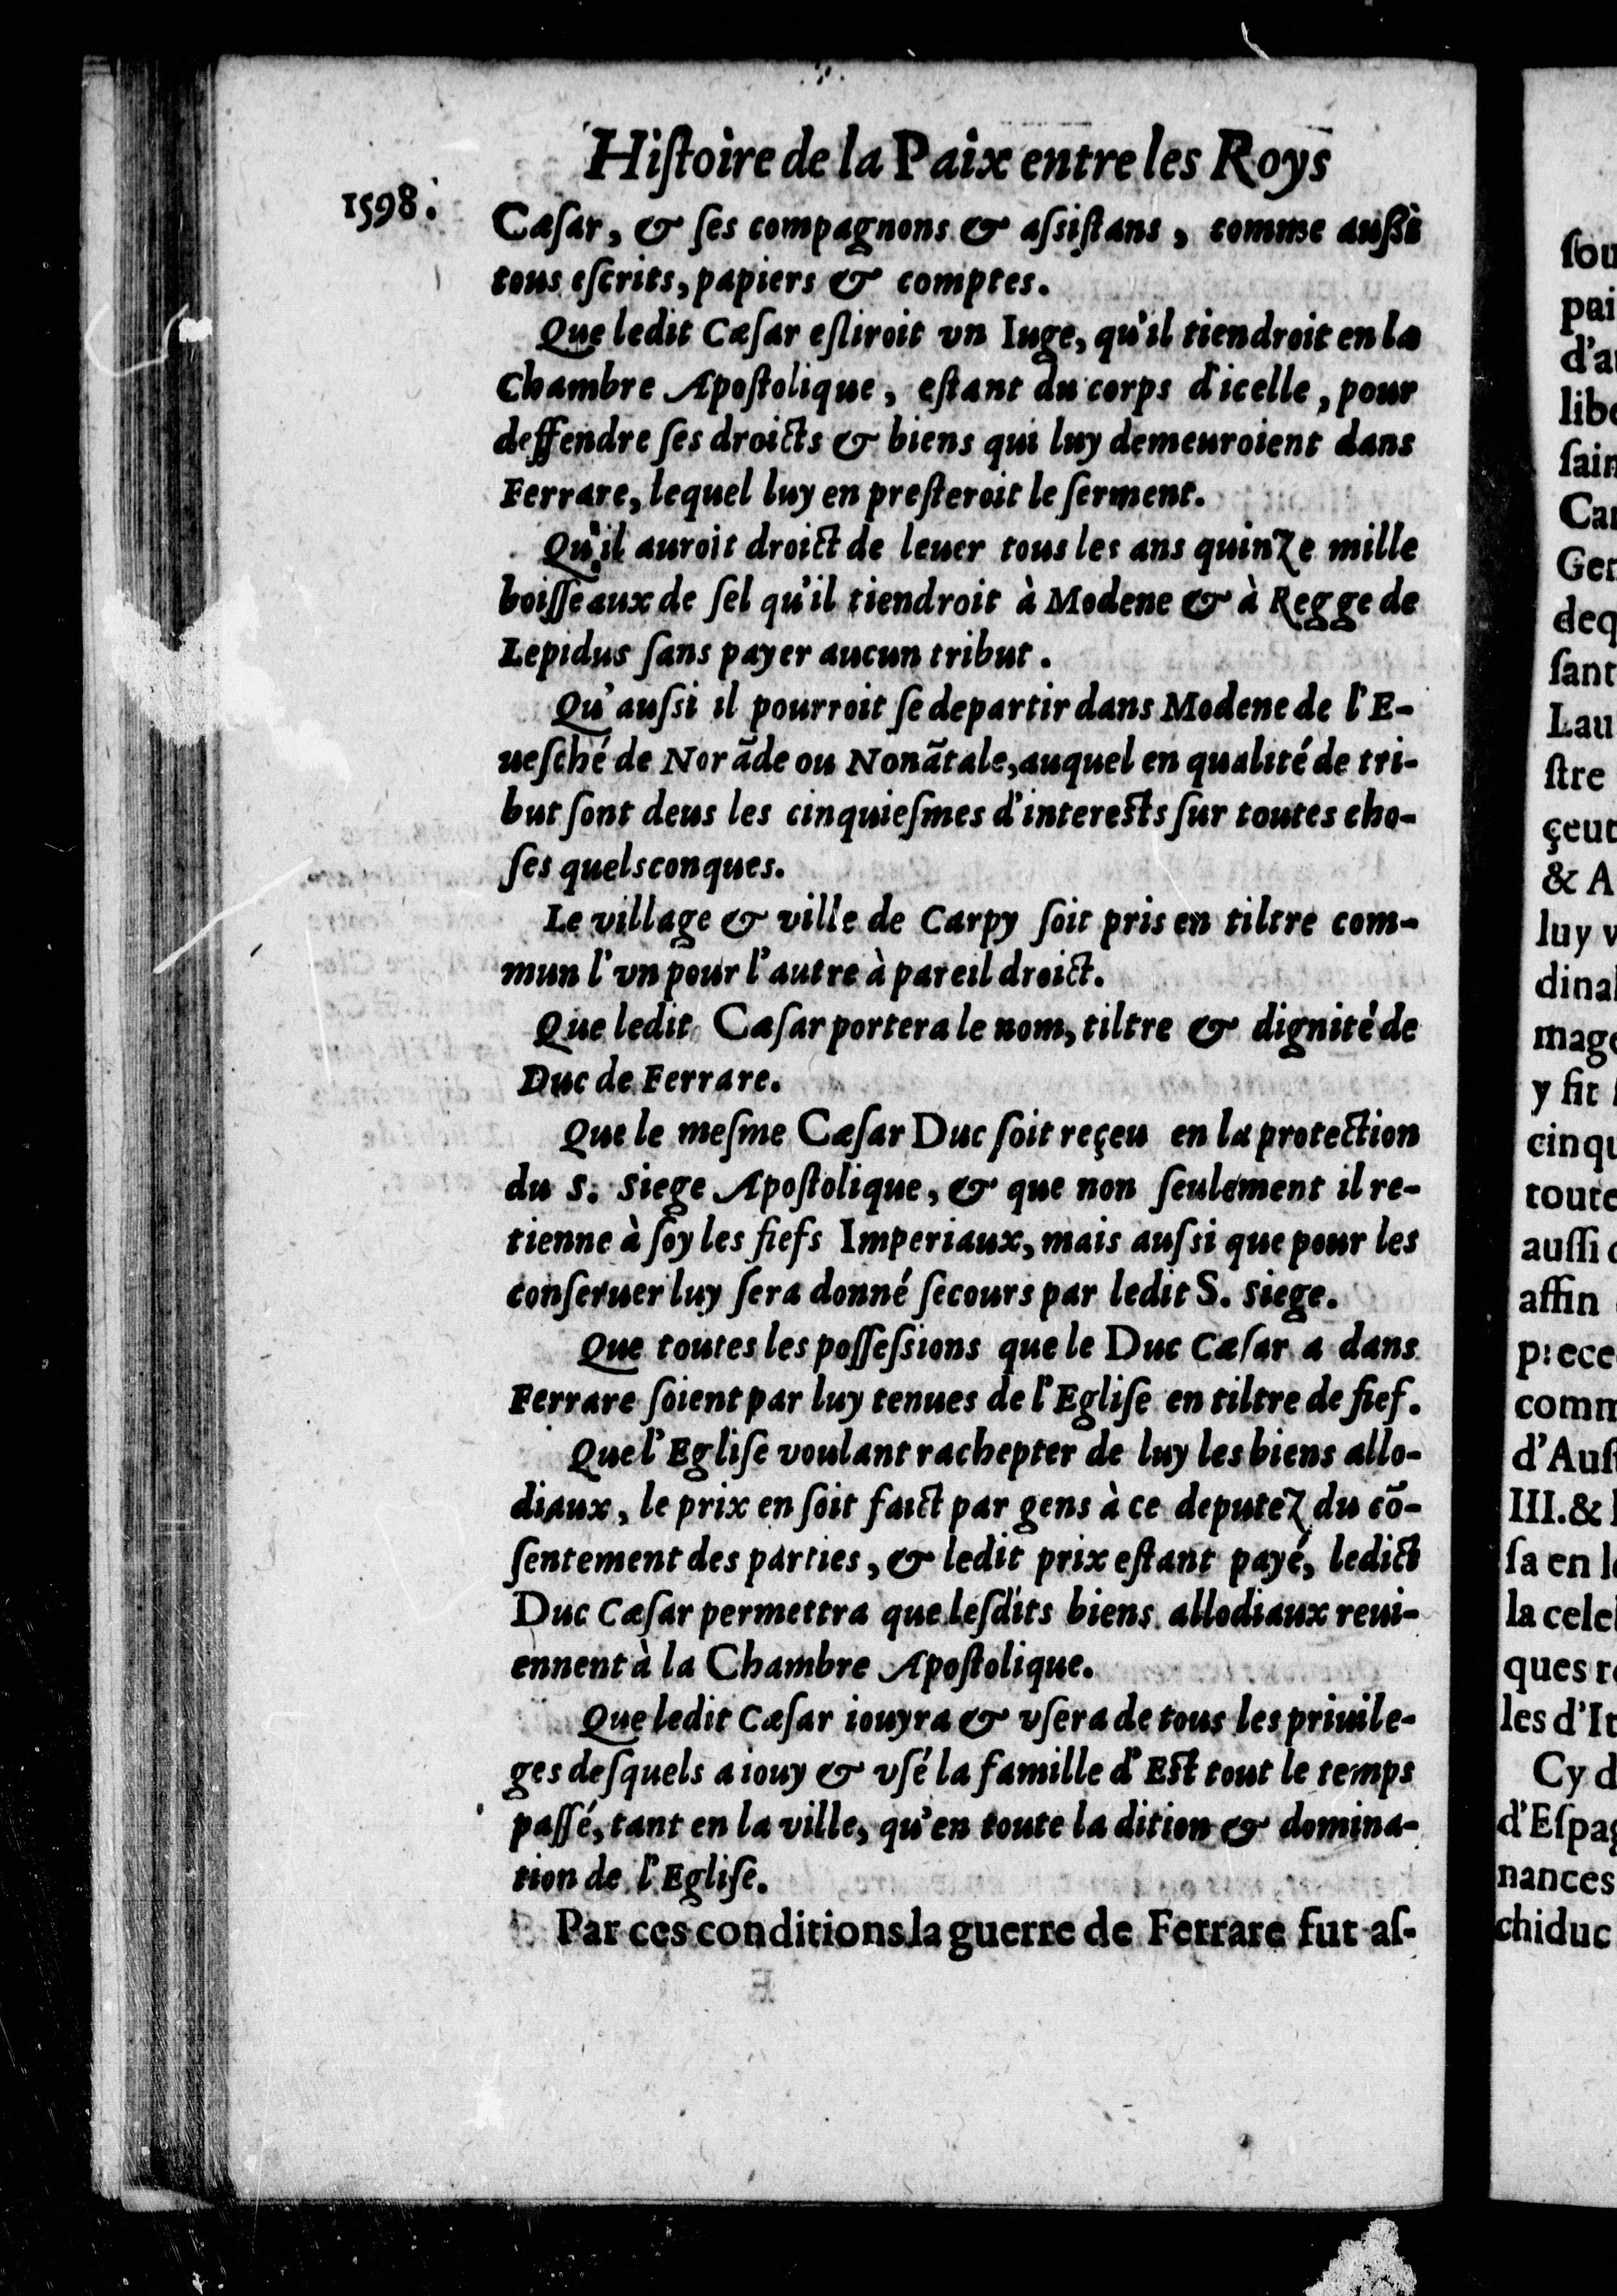 Hiſtoire de la Paix entre les Roys
1598.
Cæſar, & ſes compagnons & aſsiſtans, comme außi
tous eſcrits, papiers & comptes.
Que ledit Cæſar eſliroit vn Iuge, qu'il tiendroit en la
Chambre Apoſtolique, eſtant du corps d'icelle, pour
deffendre ſes droicts & biens qui luy demeuroient dans
Ferrare, lequel luy en preſteroit le ſerment.
Qu'il auroit droict de leuer tous les ans quinze mille
boiſſeaux de ſel qu'il tiendroit à Modene & à Regge de
Lepidus ſans payer aucun tribut.
Qu'auſsi il pourroit ſe departir dans Modene de l'E-
ueſché de Norãde ou Nonãtale, auquel en qualité de tri-
but ſont deus les cinquieſmes d'intereſts ſur toutes cho-
ſes quelsconques.
Le village & ville de Carpy ſoit pris en tiltre com-
mun l'vn pour l'autre à pareil droict.
Que ledit Cæſar portera le nom, tiltre & dignité de
Duc de Ferrare.
Que le meſme Cæſar Duc ſoit reçeu en la protection
du S. Siege Apoſtolique, & que non ſeulement il re-
tienne à ſoy les fiefs Imperiaux, mais auſsi que pour les
conſeruer luy ſera donné ſecours par ledit S. Siege.
Que toutes les poſſeſsions que le Duc Cæſar a dans
Ferrare ſoient par luy tenues de l'Egliſe en tiltre de fief.
Que l'Egliſe voulant rachepter de luy les biens allo-
diaux, le prix en ſoit faict par gens à ce deputez du cõ-
ſentement des parties, & ledit prix eſtant payé, ledict
Duc Cæſar permettra que leſdits biens allodiaux reui-
ennent à la Chambre Apoſtolique.
Que ledit Cæſar iouyra & vſera de tous les priuile-
ges deſquels a iouy & vſé la famille d'Eſt tout le temps
paſſé, tant en la ville, qu'en toute la dition & domina-
tion de l'Egliſe.
Par ces conditions la guerre de Ferrare fut aſ-
ſou
pai
d'au
libe
ſain
Car
Gen
deq
ſant
Lau
ſtre
çeut
& A
luy v
dinal
mage
y fit
cinqu
toute
auſſi
affin
prece
comm
d'Auſ
III. &
ſa en l
la cele
ques r
les d'It
Cy d
d'Eſpag
nances
chiduc